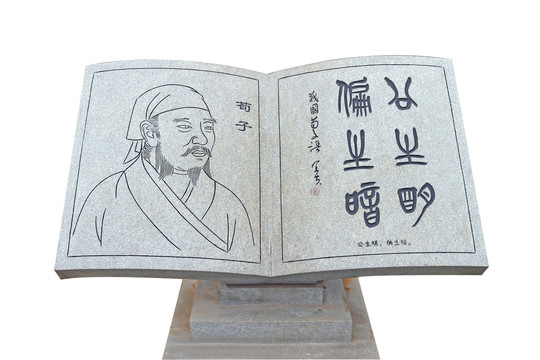 荀子
公生明
偏生暗
战国荀子语
公生明，偏生暗。